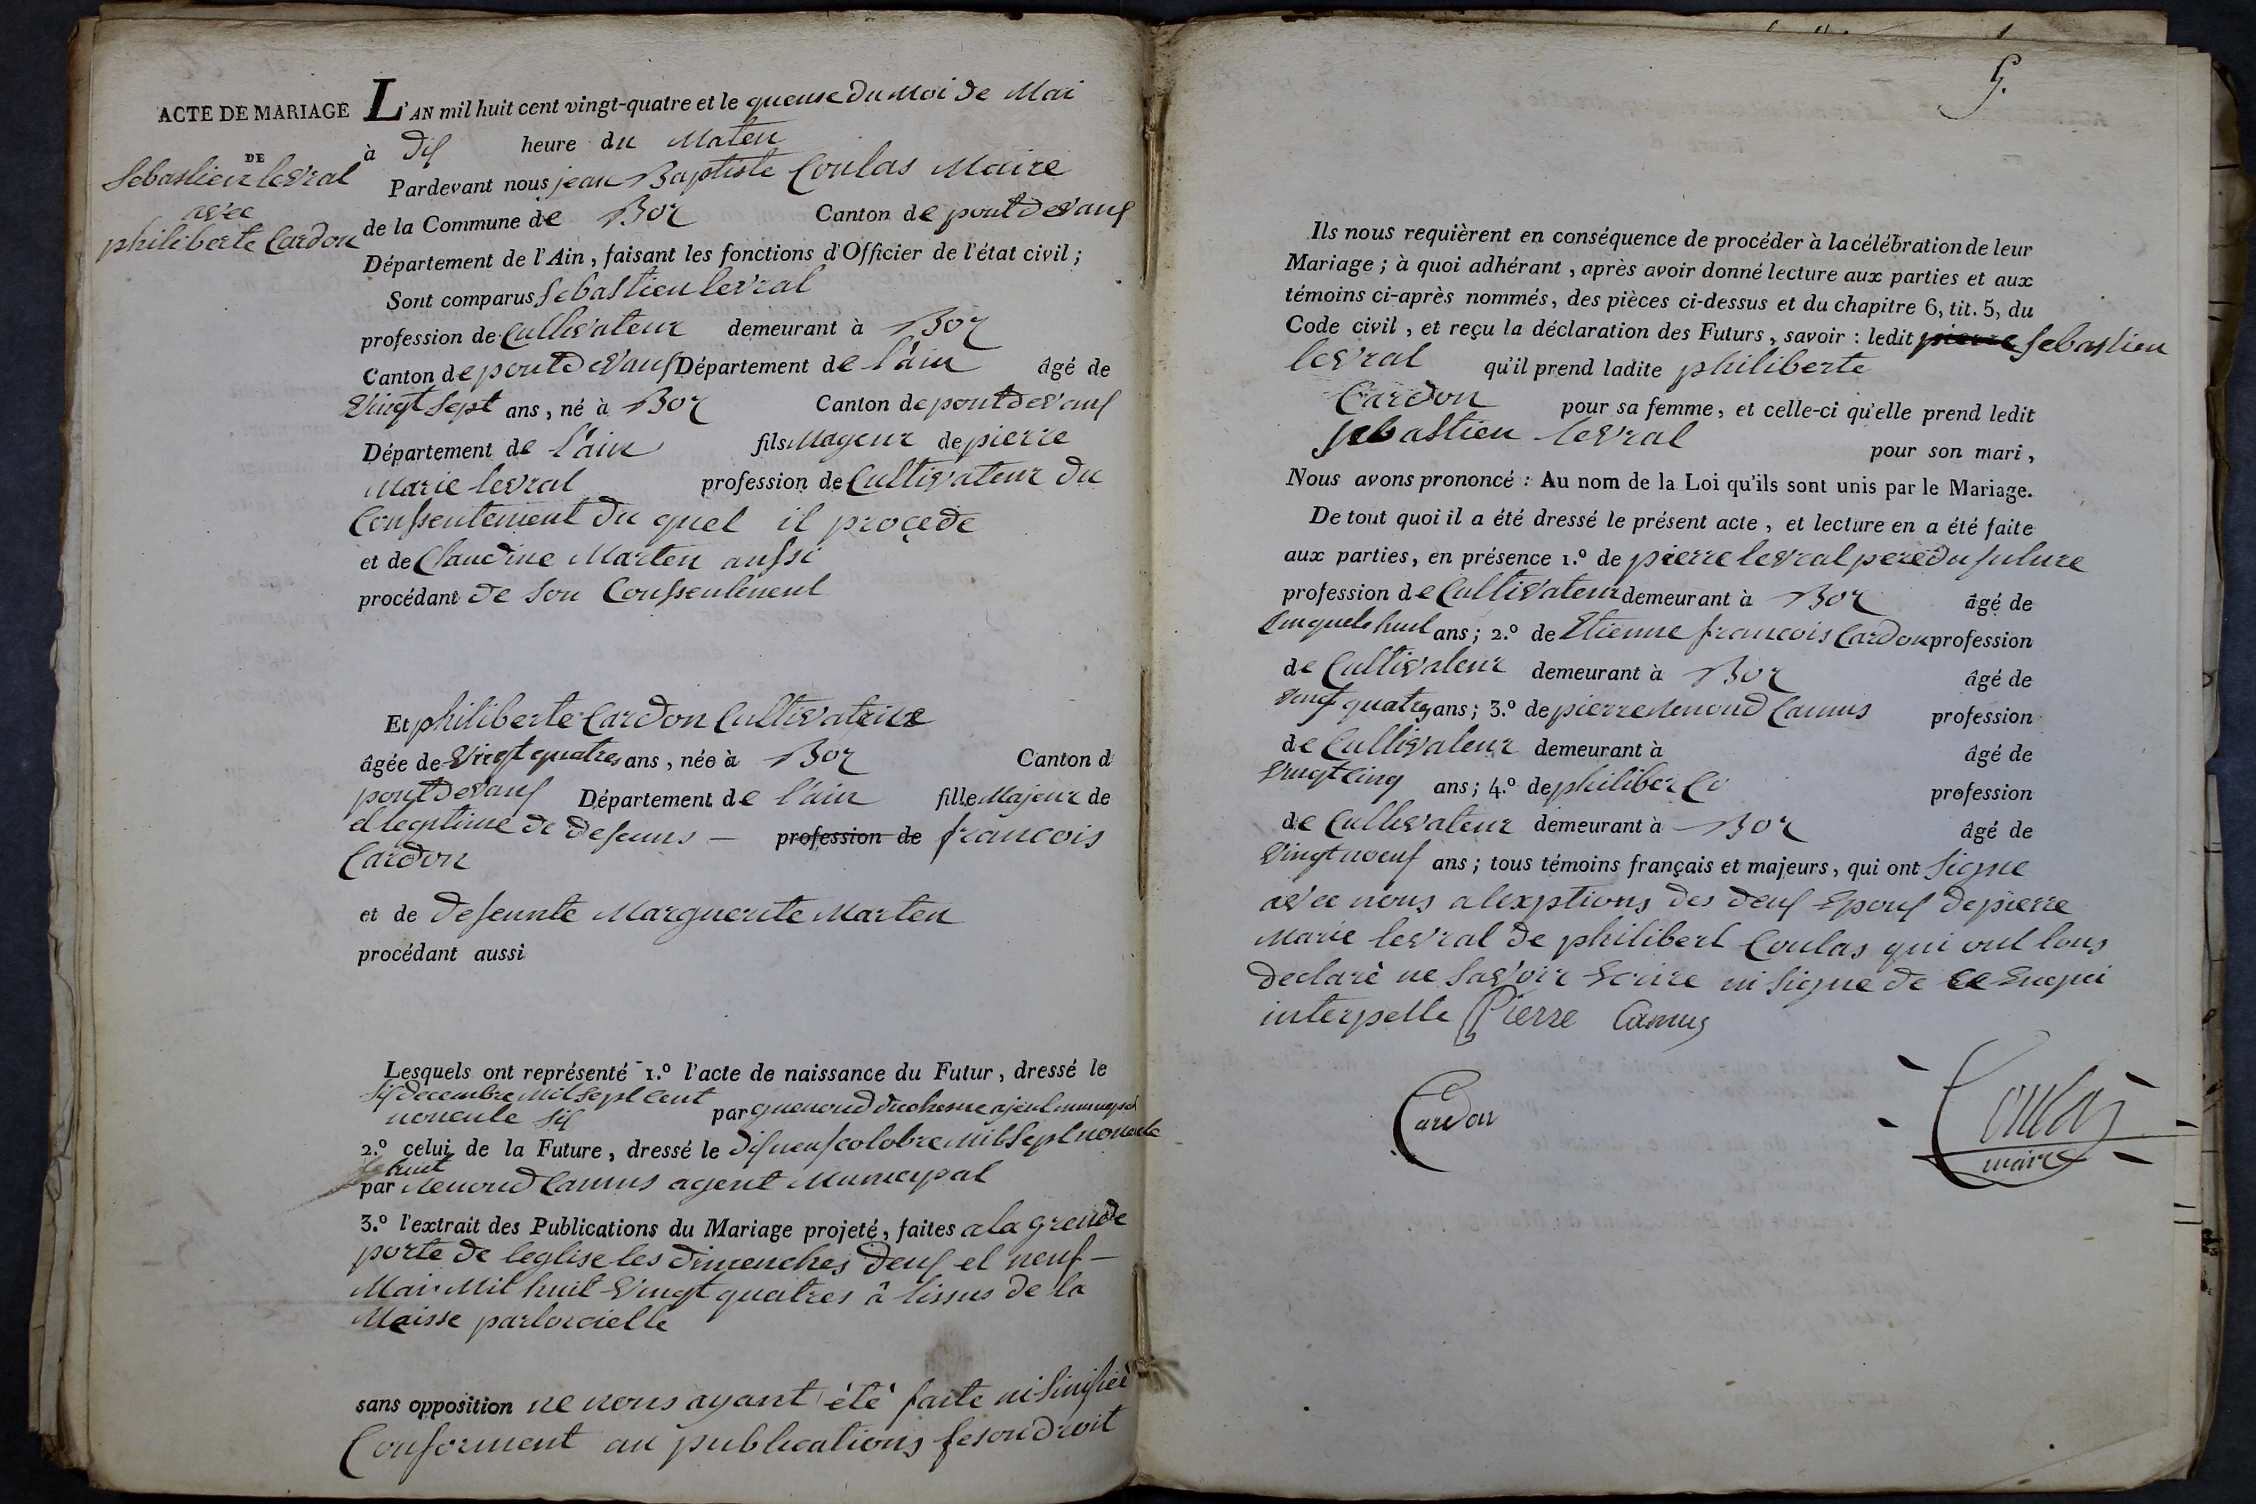 ACTE DE MARIAGE
DE
Sebastien levral
avec
philiberte Cardon
L'AN mil huit cent vingt-quatre et le queuse du Moi de Mai
à dix heure du Maten
Pardevant nous jean Baptiste Coulas Maire
de la Commune de Boz Canton de pontdevauf
Département de l'Ain, faisant les fonctions d'Officier de l'état civil;
Sont comparus Sebastien levral
profession de Cultivateur demeurant à Boz
Canton de pontdevauf Département de l'ain âgé de
Vingt Sept ans, né à Boz Canton de pontdevauf
Département de l'ain fils Mageur de pierre
Marie levral profession de Cultivateur du
Consentement du quel il procede
et de Claudine Marten aussi
procédant de Son Consentement
Et philiberte Cardon Cultivatrice
âgée de Vingt quatres ans, née à Boz Canton d
pontdevauf Département de l'ain fille Majeur de
et legitime de defeuns — profession de francois
Cardon
et de defeunte Marguerite Marten
procédant aussi
Lesquels ont représenté 1.º l'acte de naissance du Futur, dressé le
Six decembre Mil Sept Cent
nonente Six par
2.º celui de la Future, dressé le dix neuf octobre Mil Sept nonente
huit
par Renoud Camus agent Municypal
3.º l'extrait des Publications du Mariage projeté, faites a la grende
porte de leglise les dimenches deux et neuf —
Mai Mil huit Vingt quatres à lissus de la
Maisse
sans opposition ne nous ayant été faite ni Sinifiée
Conforment au publications fesondroit
5.
Ils nous requièrent en conséquence de procéder à la célébration de leur
Mariage; à quoi adhérant, après avoir donné lecture aux parties et aux
témoins ci-après nommés, des pièces ci-dessus et du chapitre 6, tit. 5, du
Code civil, et reçu la déclaration des Futurs, savoir: ledit pierre Sebastien
levral qu'il prend ladite philiberte
Cardon pour sa femme, et celle-ci qu'elle prend ledit
Sebastien levral pour son mari,
Nous avons prononcé: Au nom de la Loi qu'ils sont unis par le Mariage.
De tout quoi il a été dressé le présent acte, et lecture en a été faite
aux parties, en présence 1.º de pierre levral pere du future
profession de Cultivateur demeurant à Boz âgé de
Cinquete huit ans; 2.º de Etienne francois Cardon profession
de Cultivateur demeurant à Boz âgé de
Vingt quatres ans; 3.º de pierre Renoud Camus profession
de Cultivateur demeurant à âgé de
Vingt Cinq ans; 4.º de philiber Co profession
de Cultivateur demeurant à Boz âgé de
Vingt noeuf ans; tous témoins français et majeurs, qui ont Signe
avec nous a lexptions des deux Epoux de pierre
Marie levral de philibert Coulas qui ont tous
declaré ne Savoir Ecrire ni Signe de ce Enquei
interpelle Pierre Camus
Cardon
Coulas
maire